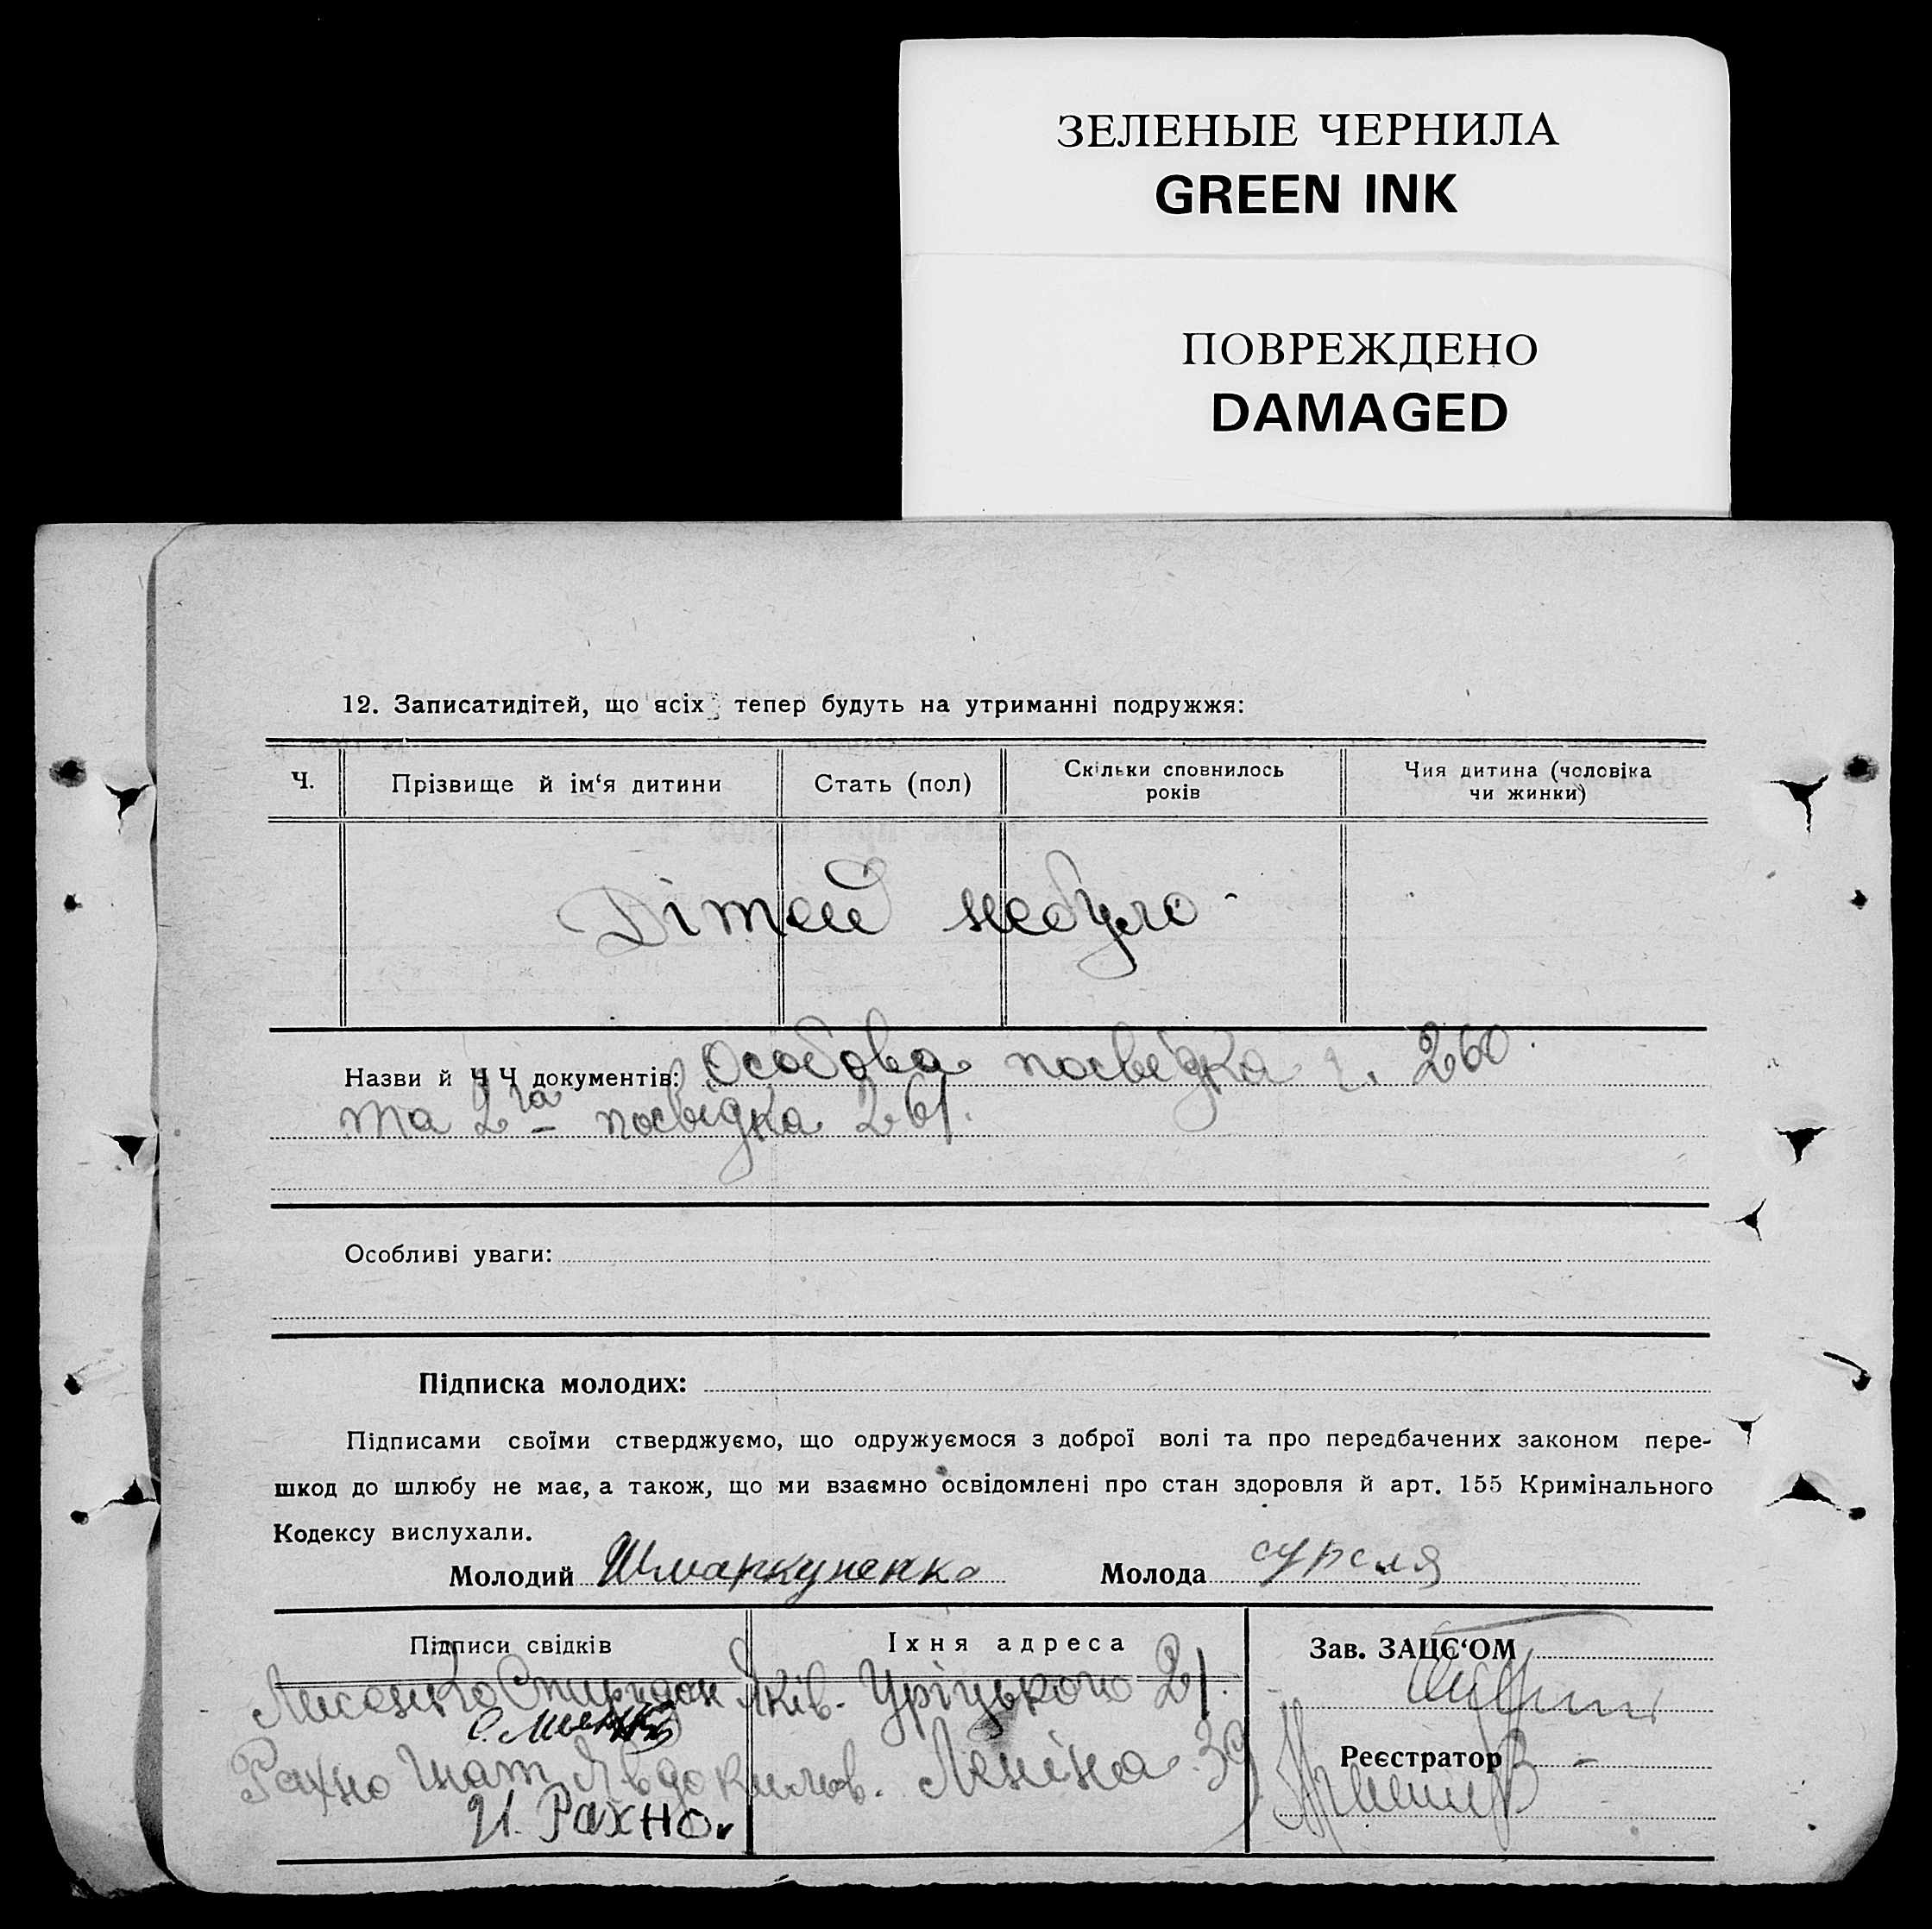 ЗЕЛЕНЫЕ ЧЕРНИЛА
GREEN INK
ПОВРЕЖДЕНО
DAMAGED
12. Записатидітей, що всіх тепер будуть на утриманні подружжя:
Ч. Прізвище й ім‘я дитини Стать (пол) Скільки сповнилось років Чия дитина (чоловіка чи жинки)
Дітей небуло
Назви й Ч Ч документів: Особова посвідка ч. 260
та 2га посвідка 261.
Особливі уваги:
Підписка молодих:
Підписами своїми стверджуємо, що одружуємося з доброї волі та про передбачених законом пере-
шкод до шлюбу не має, а також, що ми взаємно освідомлені про стан здоровля й арт. 155 Кримінального
Кодексу вислухали.
Молодий Молода
Підписи свідків Їхня адреса Зав. ЗАЦС‘ОМ
Лисенко Спиридон Яків. Уріцького 21.
Реєстратор
Рахно Гнат Явдокимов. Леніна 39
И. Рахно.